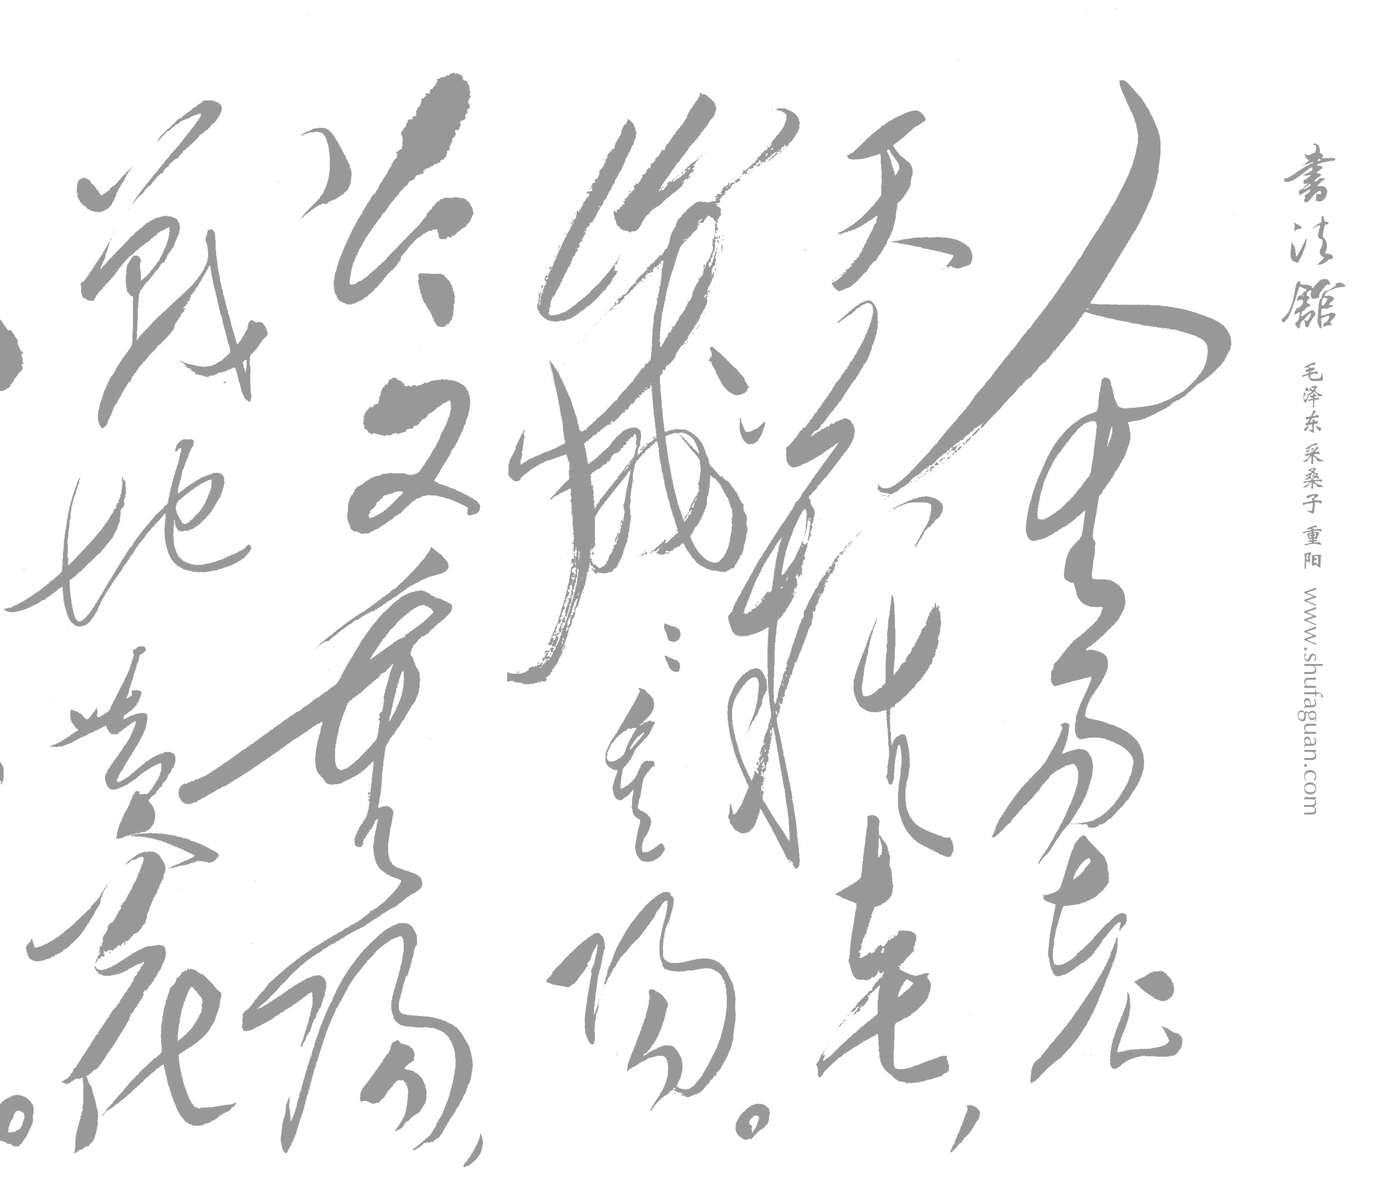 書法舘 毛泽东 采桑子 重阳 www.shufaguan.com
人生易老
天難老，
歲〻重陽。
今又重陽，
戰地黄花